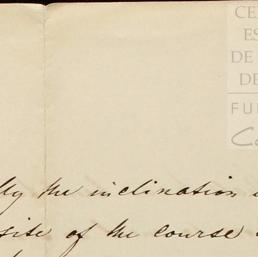 CE
ES
DE
DE
FU
Ca
lly the inclination
site of the course